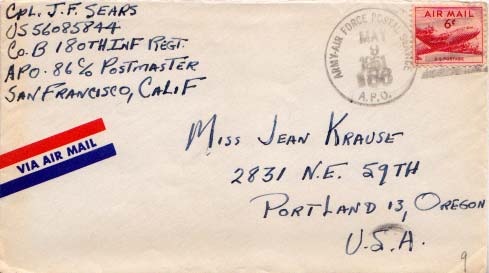 CPL. J.F. SEARS
US56085844
CO. B 180TH INF REGT.
APO. 86 C/O POSTMASTER
SAN FRANCISCO, CALIF
ARMY-AIR FORCE POSTAL SERVICE
MAY
9
1951
A.P.O.
AIR MAIL
6¢
U.S. POSTAGE
VIA AIR MAIL
MISS JEAN KRAUSE
2831 N.E. 59TH
PORTLAND 13, OREGON
U.S.A.
9